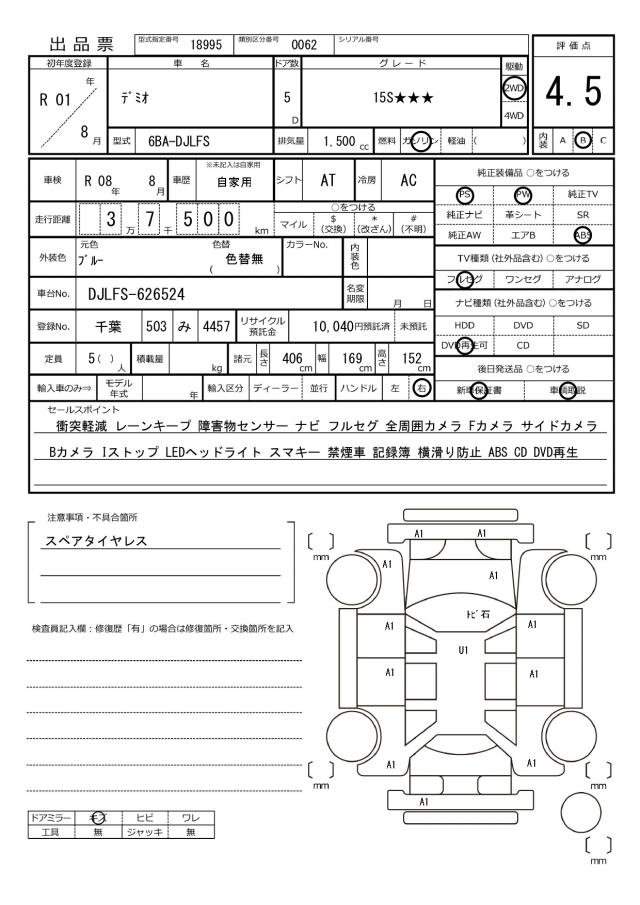 出品票 型式指定番号 18995 類別区分番号 0062 シリアル番号
評価点
4.5
初年度登録 車名 ドア数 グレード 駆動
R 01 年 8 月
ﾃﾞﾐｵ 5 D 15S★★★ 2WD
4WD
型式 6BA-DJLFS 排気量 1.500 cc 燃料 ガソリン 軽油 ( ) 内装 A B C
車検 R 08 年 8 月 車歴 ※未記入は自家用 自家用 シフト AT 冷房 AC
走行距離 3 7 万 千 5 0 0 km
○をつける
マイル $(交換) *(改ざん) #(不明)
外装色 元色 ﾌﾞﾙｰ 色替 色替無 ( ) カラーNo. 内装色
車台No. DJLFS-626524 名変期限 月 日
登録No. 千葉 503 み 4457 リサイクル預託金 10,040円預託済 未預託
定員 5 ( ) 人 積載量 kg 諸元 長さ 406 cm 幅 169 cm 高さ 152 cm
輸入車のみ⇒ モデル年式 年 輸入区分 ディーラー 並行 ハンドル 左 右
純正装備品 ○をつける
PS PW 純正TV
純正ナビ 革シート SR
純正AW エアB ABS
TV種類(社外品含む)○をつける
フルセグ ワンセグ アナログ
ナビ種類(社外品含む)○をつける
HDD DVD SD
DVD再生可 CD
後日発送品 ○をつける
新車保証書 車輌取説
セールスポイント
衝突軽減 レーンキープ 障害物センサー ナビ フルセグ 全周囲カメラ Fカメラ サイドカメラ
Bカメラ Iストップ LEDヘッドライト スマキー 禁煙車 記録簿 横滑り防止 ABS CD DVD再生
注意事項・不具合箇所
スペアタイヤレス
検査員記入欄：修復歴「有」の場合は修復箇所・交換箇所を記入
ドアミラー キズ ヒビ ワレ
工具 無 ジャッキ 無
A1 A1
mm mm
A1 A1
ﾄﾋﾞ石
A1 A1
U1
A1 A1
A1 A1
mm mm
A1
mm